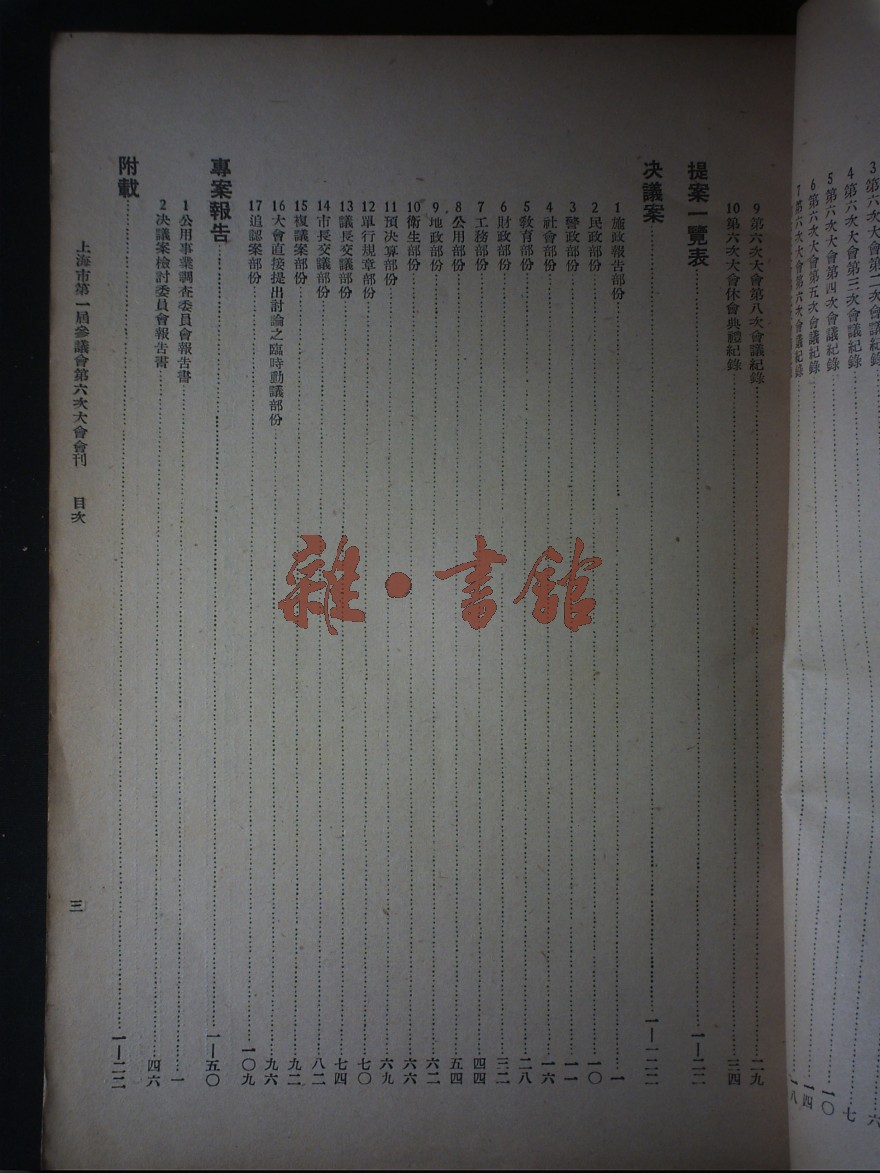 3 第六次大會第二次會議紀錄……六
4 第六次大會第三次會議紀錄……七
5 第六次大會第四次會議紀錄……一〇
6 第六次大會第五次會議紀錄……一四
7 第六次大會第六次會議紀錄……一八
9 第六次大會第八次會議紀錄……二九
10 第六次大會休會典禮紀錄……三四
提案一覽表……一—二二
決議案……一—一二二
1 施政報告部份……一
2 民政部份……一〇
3 警政部份……一一
4 社會部份……一六
5 敎育部份……二八
6 財政部份……三二
7 工務部份……四四
8 公用部份……五四
9 地政部份……六二
10 衛生部份……六六
11 預决算部份……六九
12 單行規章部份……七〇
13 議長交議部份……七四
14 市長交議部份……八二
15 複議案部份……九二
16 大會直接提出討論之臨時動議部份……九六
17 追認案部份……一〇九
專案報告……一—五〇
1 公用事業調查委員會報告書……一
2 决議案檢討委員會報告書……四六
附載……一—二二
上海市第一屆參議會第六次大會會刊 目次
三
雜·書館